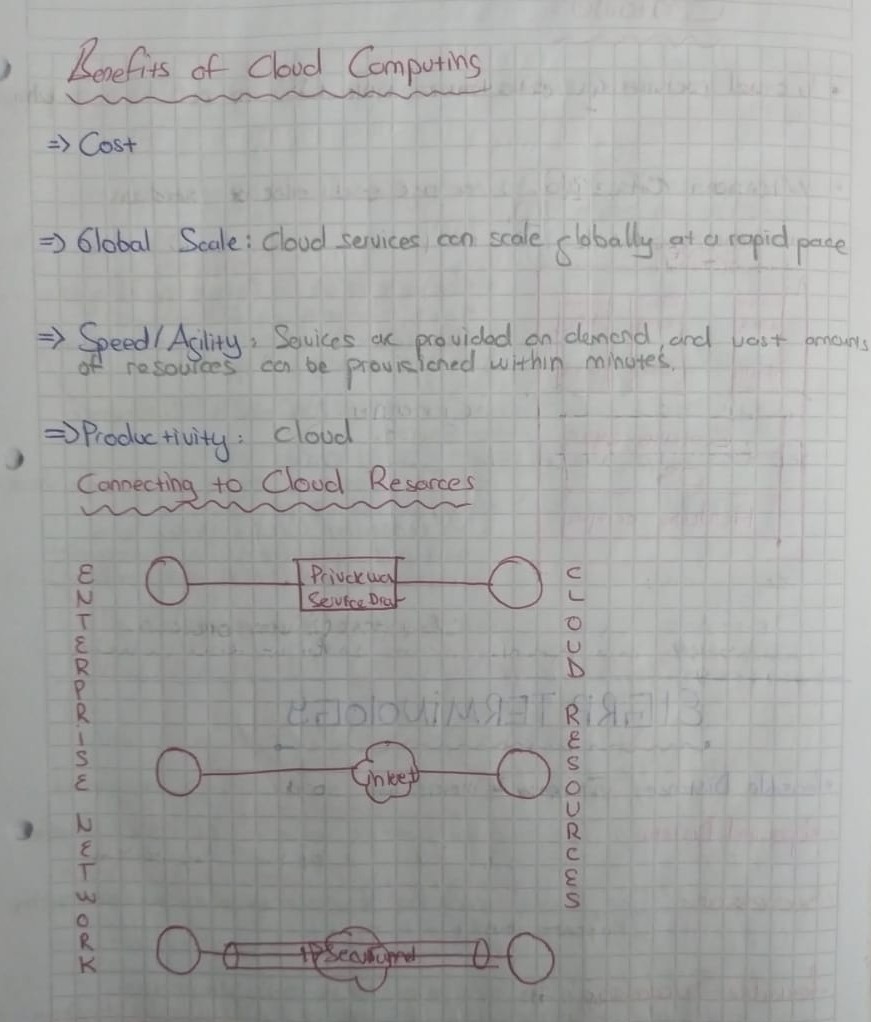 Benefits of Cloud Computing
=> Cost
=> Global Scale: Cloud services can scale globally at a rapid pace
=> Speed/Agility: Sevices are provided on demand, and vast amouns
of resources can be provisiened within minutes.
=> Productivity: Cloud
Connecting to Cloud Resorces
ENTERPRISE NETWORK
Service
IPSec
CLOUD RESOURCES